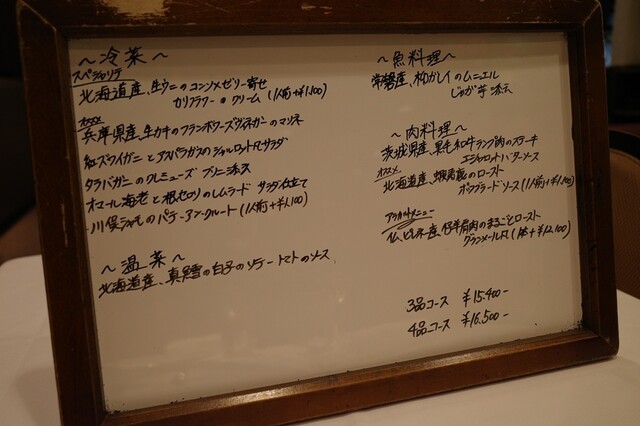 ～冷菜～
スペシャリテ
北海道産、生ウニのコンソメゼリー寄せ
カリフラワーのクリーム (1人前+¥1,100)
オススメ
兵庫県産、生カキのフランボワーズヴィネガーのマリネ
紅ズワイガニとアスパラガスのシャルロット サラダ
タラバガニのクレミューズ ブリニ添え
オマール海老と根セロリのレムラード サラダ仕立て
川俣シャモのパテ・アン・クルート (1人前+¥1,100)
～温菜～
北海道産、真鱈の白子のソテー トマトのソース
～魚料理～
常磐産、柳カレイのムニエル
じゃが芋添え
～肉料理～
茨城県産、黒毛和牛ランプ肉のステーキ
エシャロットバターソース
オススメ
北海道産、蝦夷鹿のロースト
ポワヴラードソース (1人前+¥1,100)
アラカルトメニュー
仏、ピレネー産、仔羊肩肉のまるごとロースト
グランメール風 (1台+¥12,100)
3品コース ¥15,400-
4品コース ¥16,500-